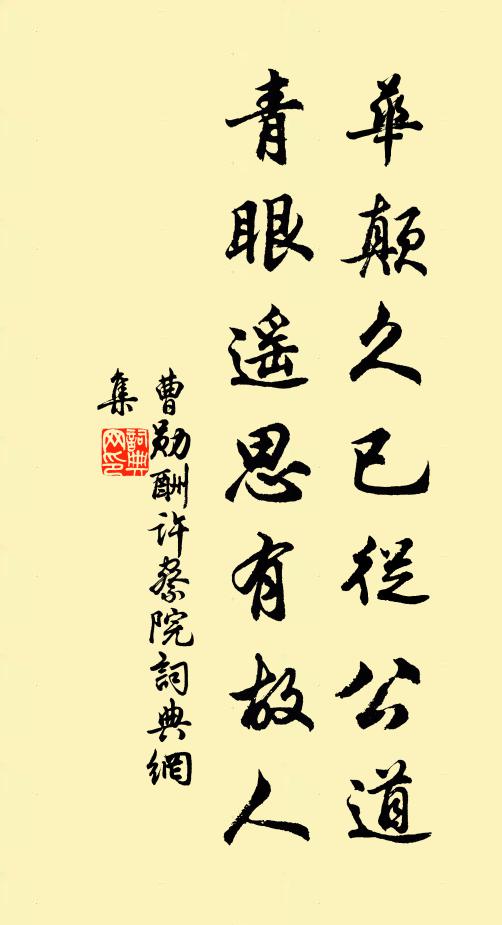 華顛久已從公道
青眼遥思有故人
曹勛酬許察院詞典網
集
詞典
网印